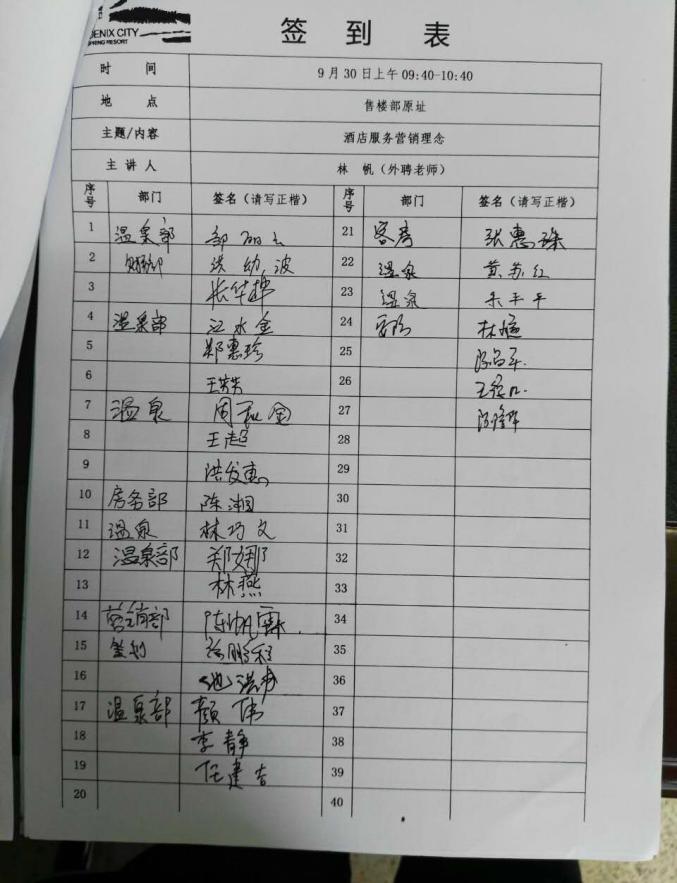 ENIX CITY
SPRING RESORT
签 到 表
时 间 9月30日上午09:40-10:40
地 点 售楼部原址
主题/内容 酒店服务营销理念
主 讲 人 林 帆（外聘老师）
序号 部门 签名（请写正楷） 序号 部门 签名（请写正楷）
1 温泉部 21 客房 张惠
2 洪幼波 22 温泉 黄苏红
3 张华 23 温泉 朱平平
4 温泉部 江水金 24 林
5 郑惠珍 25
6 王芳芳 26
7 温泉 周 金 27
8 王超 28
9 洪发惠 29
10 房务部 陈湘 30
11 温泉 林巧文 31
12 温泉部 郑娜 32
13 林燕 33
14 营销部 陈帆霖 34
15 张鹏程 35
16 池洪 36
17 温泉部 颜伟 37
18 李静 38
19 任建吉 39
20 40